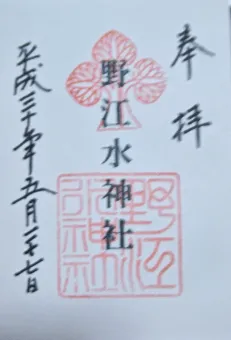 奉拝
野江水神社
野江水神社
平成三十年五月二十七日